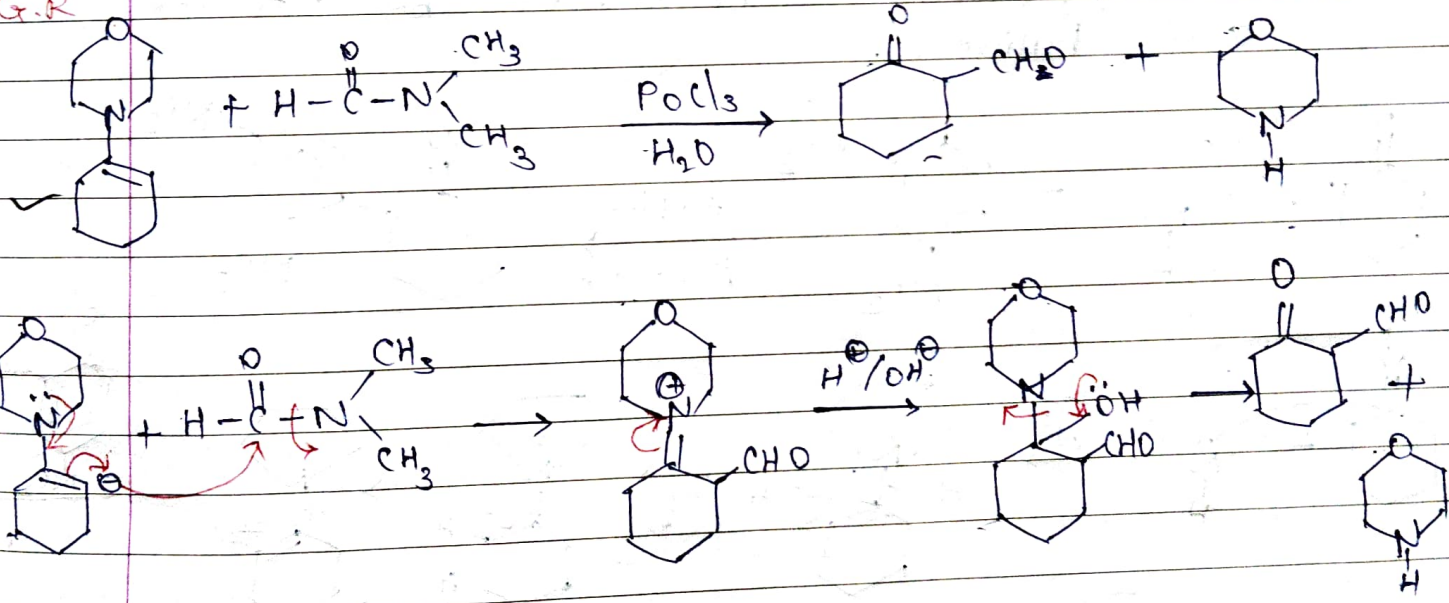 G.R
O
N
+ H-C-N
O
CH3
CH3
POCl3
H2O
O
CHO
+
O
N
H
O
N
+ H-C-N
O
CH3
CH3
⊖
O
⊕
N
CHO
H⊕/OH⊖
O
N
ÖH
CHO
O
CHO
+
O
N
H